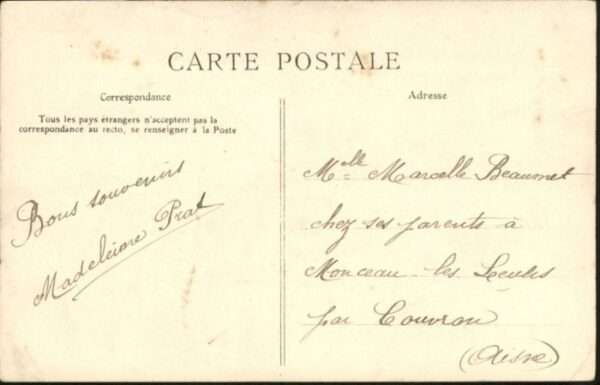 CARTE POSTALE
Correspondance
Tous les pays étrangers n'acceptent pas la
correspondance au recto, se renseigner à la Poste
Bons souvenirs
Madeleine Prat
Adresse
Melle Marcelle Beaumet
chez ses parents à
Monceau les Leules
par Couvron
(Aisne)